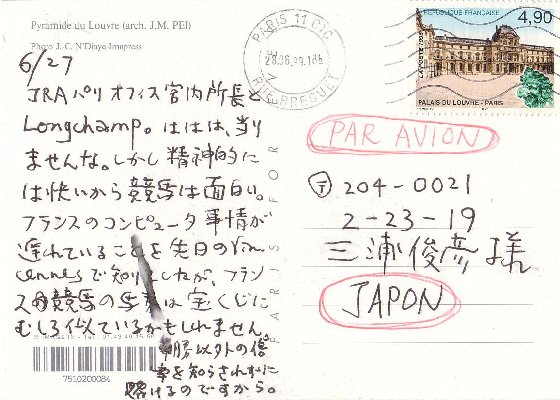 Pyramide du Louvre (arch. J.M. PEI)
Photo J.-C. N'Diaye-Imapress
6/27
JRAパリオフィス宮内所長と
Longchamp。ははは、当り
ませんな。しかし精神的に
は快いから競馬は面白い。
フランスのコンピュータ事情が
遅れていることを先日のVin-
cennesで知りましたが、フラン
ス母競馬の
は宝くじに
むしろ似ているかもしれません。
勝以外の信
を知らされずに
賭けるのですから。
7510200084
PARIS FOR
PARIS 11 DIC
RUE BREGUET
REPUBLIQUE FRANÇAISE
4,90
LA POSTE
PALAIS DU LOUVRE - PARIS
PAR AVION
〒204-0021
2-23-19
三浦俊彦様
JAPON